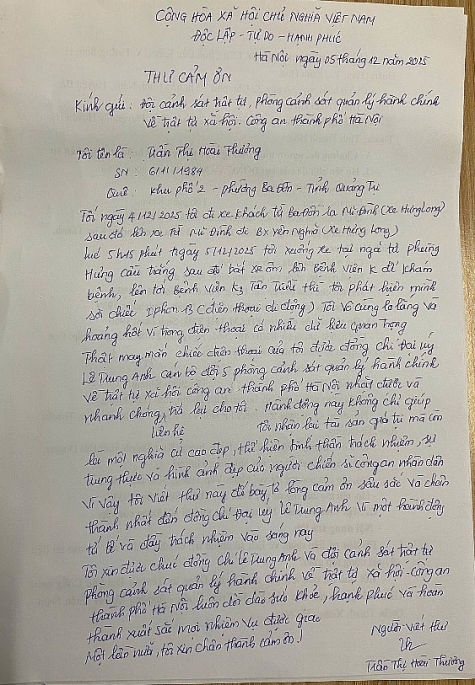 CỘNG HÒA XÃ HỘI CHỦ NGHĨA VIỆT NAM
ĐỘC LẬP - TỰ DO - HẠNH PHÚC
Hà Nội ngày 05 tháng 12 năm 2025
THƯ CẢM ƠN
Kính gửi: Đội cảnh sát trật tự, phòng cảnh sát quản lý hành chính
về trật tự xã hội. Công an thành phố Hà Nội
Tôi tên là: Trần Thị Hoài Thương
SN: 6/11/1984
Quê: Khu phố 2 - phường Ba Đồn - Tỉnh Quảng Trị
Tối ngày 4/12/2025 tôi đi xe khách từ Ba Đồn ra Mỹ Đình (Xe Hưng Long)
sau đó lên xe từ Mỹ Đình đi Bx Yên Nghĩa (Xe Hưng Long)
lúc 5h15 phút ngày 5/12/2025 tôi xuống xe tại ngã tư phùng
Hưng cầu trắng sau đó bắt xe ôm lên Bệnh Viện K để khám
bệnh, lên tới Bệnh Viện K3 Tân Triều thì tôi phát hiện mình
rơi chiếc Iphon 13 (điện thoại di động) Tôi vô cùng lo lắng và
hoảng hốt vì trong điện thoại có nhiều dữ liệu quan trọng
Thật may mắn chiếc điện thoại của tôi được đồng chí Đại úy
Lê Trung Anh cán bộ đội 5 phòng cảnh sát quản lý hành chính
về trật tự xã hội công an thành phố Hà Nội nhặt được và
nhanh chóng trả lại cho tôi. Hành động này không chỉ giúp
liên hệ tôi nhận lại tài sản giá trị mà còn
là một nghĩa cử cao đẹp, thể hiện tinh thần trách nhiệm, sự
trung thực và hình ảnh đẹp của người chiến sĩ công an nhân dân
Vì vậy tôi viết thư này để bày tỏ lòng cảm ơn sâu sắc và chân
thành nhất đến đồng chí Đại úy Lê Trung Anh vì một hành động
tử tế và đầy trách nhiệm vào sáng nay
Tôi xin được chúc đồng chí Lê Trung Anh và đội cảnh sát trật tự
phòng cảnh sát quản lý hành chính về trật tự xã hội công an
thành phố Hà Nội luôn dồi dào sức khỏe, hạnh phúc và hoàn
thành xuất sắc mọi nhiệm vụ được giao
Một lần nữa, tôi xin chân thành cảm ơn!
Người viết thư
Trần Thị Hoài Thương